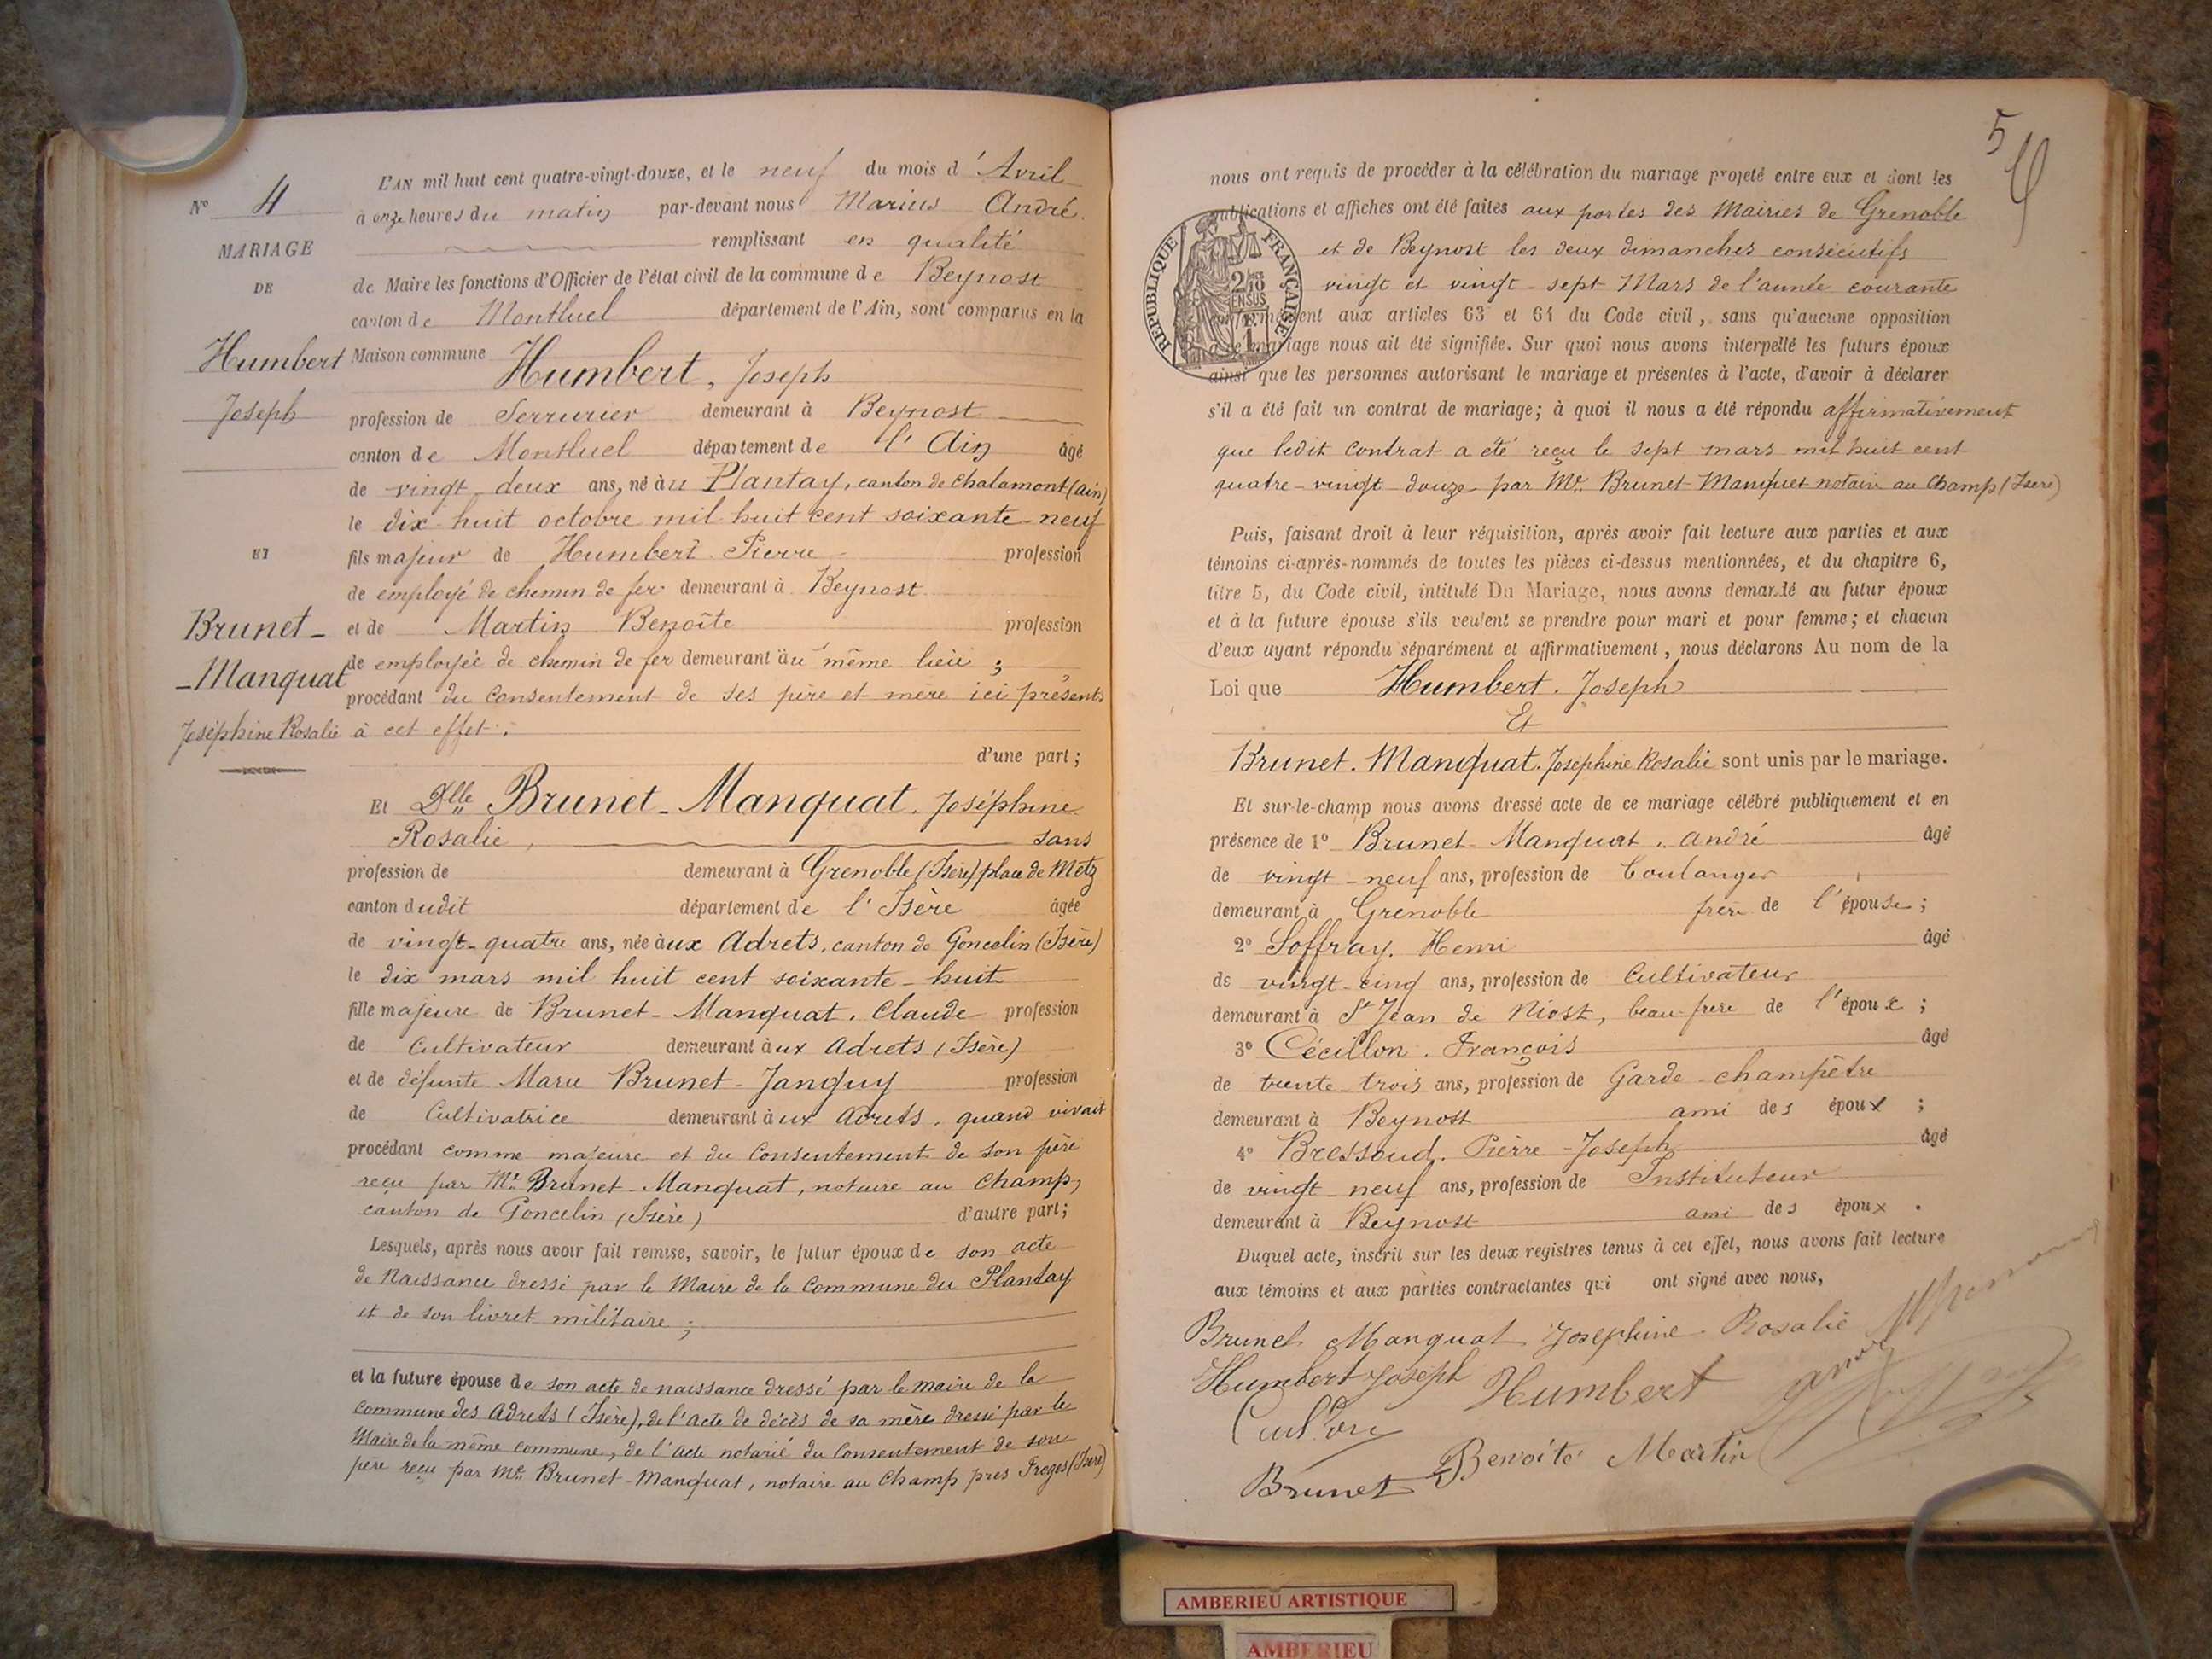 N° 4
MARIAGE
DE
Humbert
Joseph
ET
Brunet-
-Manquat
Joséphine Rosalie
L'AN mil huit cent quatre-vingt-douze, et le neuf du mois d'Avril
à onze heures du matin par-devant nous Marius André
remplissant en qualité
de Maire les fonctions d'Officier de l'état civil de la commune de Beynost
canton de Montluel département de l'Ain, sont comparus en la
Maison commune Humbert, Joseph
profession de Serrurier demeurant à Beynost
canton de Montluel département de l'Ain âgé
de vingt-deux ans, né au Plantay, canton de Chalamont (Ain)
le dix huit octobre mil huit cent soixante-neuf
fils majeur de Humbert Pierre profession
de employé de chemin de fer demeurant à Beynost
et de Martin Benoîte profession
de employée de chemin de fer demeurant au même lieu ;
procédant du consentement de ses père et mère ici présents
à cet effet.
d'une part ;
Et Dlle Brunet-Manquat. Joséphine
Rosalie, sans
profession de demeurant à Grenoble (Isère) place de Metz
canton dudit département de l'Isère âgée
de vingt-quatre ans, née aux Adrets, canton de Goncelin (Isère)
le dix mars mil huit cent soixante-huit
fille majeure de Brunet-Manquat. Claude profession
de Cultivateur demeurant aux Adrets (Isère)
et de défunte Marie Brunet-Janquy profession
de Cultivatrice demeurant aux Adrets, quand vivait
procédant comme majeure et du Consentement de son père
reçu par Me Brunet-Manquat, notaire au Champ,
canton de Goncelin (Isère) d'autre part ;
Lesquels, après nous avoir fait remise, savoir, le futur époux de son acte
de Naissance dressé par le Maire de la Commune du Plantay
et de son livret militaire ;
et la future épouse de son acte de naissance dressé par le maire de la
commune des Adrets (Isère), de l'acte de décès de sa mère dressé par le
Maire de la même commune, de l'acte notarié du Consentement de son
père reçu par Me Brunet-Manquat, notaire au Champ près Froges (Isère)
5
nous ont requis de procéder à la célébration du mariage projeté entre eux et dont les
publications et affiches ont été faites aux portes des Mairies de Grenoble
et de Beynost les deux dimanches consécutifs
vingt et vingt-sept Mars de l'année courante
conformément aux articles 63 et 64 du Code civil, sans qu'aucune opposition
à ce mariage nous ait été signifiée. Sur quoi nous avons interpellé les futurs époux
ainsi que les personnes autorisant le mariage et présentes à l'acte, d'avoir à déclarer
s'il a été fait un contrat de mariage ; à quoi il nous a été répondu affirmativement
que ledit contrat a été reçu le sept mars mil huit cent
quatre-vingt-douze par Me Brunet-Manquat notaire au Champ (Isère)
RÉPUBLIQUE FRANÇAISE
2/10
EN SUS
Puis, faisant droit à leur réquisition, après avoir fait lecture aux parties et aux
témoins ci-après-nommés de toutes les pièces ci-dessus mentionnées, et du chapitre 6,
titre 5, du Code civil, intitulé Du Mariage, nous avons demandé au futur époux
et à la future épouse s'ils veulent se prendre pour mari et pour femme ; et chacun
d'eux ayant répondu séparément et affirmativement, nous déclarons Au nom de la
Loi que Humbert. Joseph
Et
Brunet. Manquat. Joséphine Rosalie sont unis par le mariage.
Et sur-le-champ nous avons dressé acte de ce mariage célébré publiquement et en
présence de 1° Brunet-Manquat. André âgé
de vingt-neuf ans, profession de boulanger
demeurant à Grenoble frère de l'épouse ;
2° Soffray. Henri âgé
de vingt-cinq ans, profession de Cultivateur
demeurant à St Jean de Niost, beau-frère de l'époux ;
3° Cécillon. François âgé
de trente-trois ans, profession de Garde-champêtre
demeurant à Beynost ami des époux ;
4° Bressoud. Pierre-Joseph âgé
de vingt-neuf ans, profession de Instituteur
demeurant à Beynost ami des époux.
Duquel acte, inscrit sur les deux registres tenus à cet effet, nous avons fait lecture
aux témoins et aux parties contractantes qui ont signé avec nous,
Brunet Manquat Joséphine-Rosalie
Humbert Joseph Humbert
Benoite Martin
Brunet
AMBERIEU ARTISTIQUE
AMBERIEU